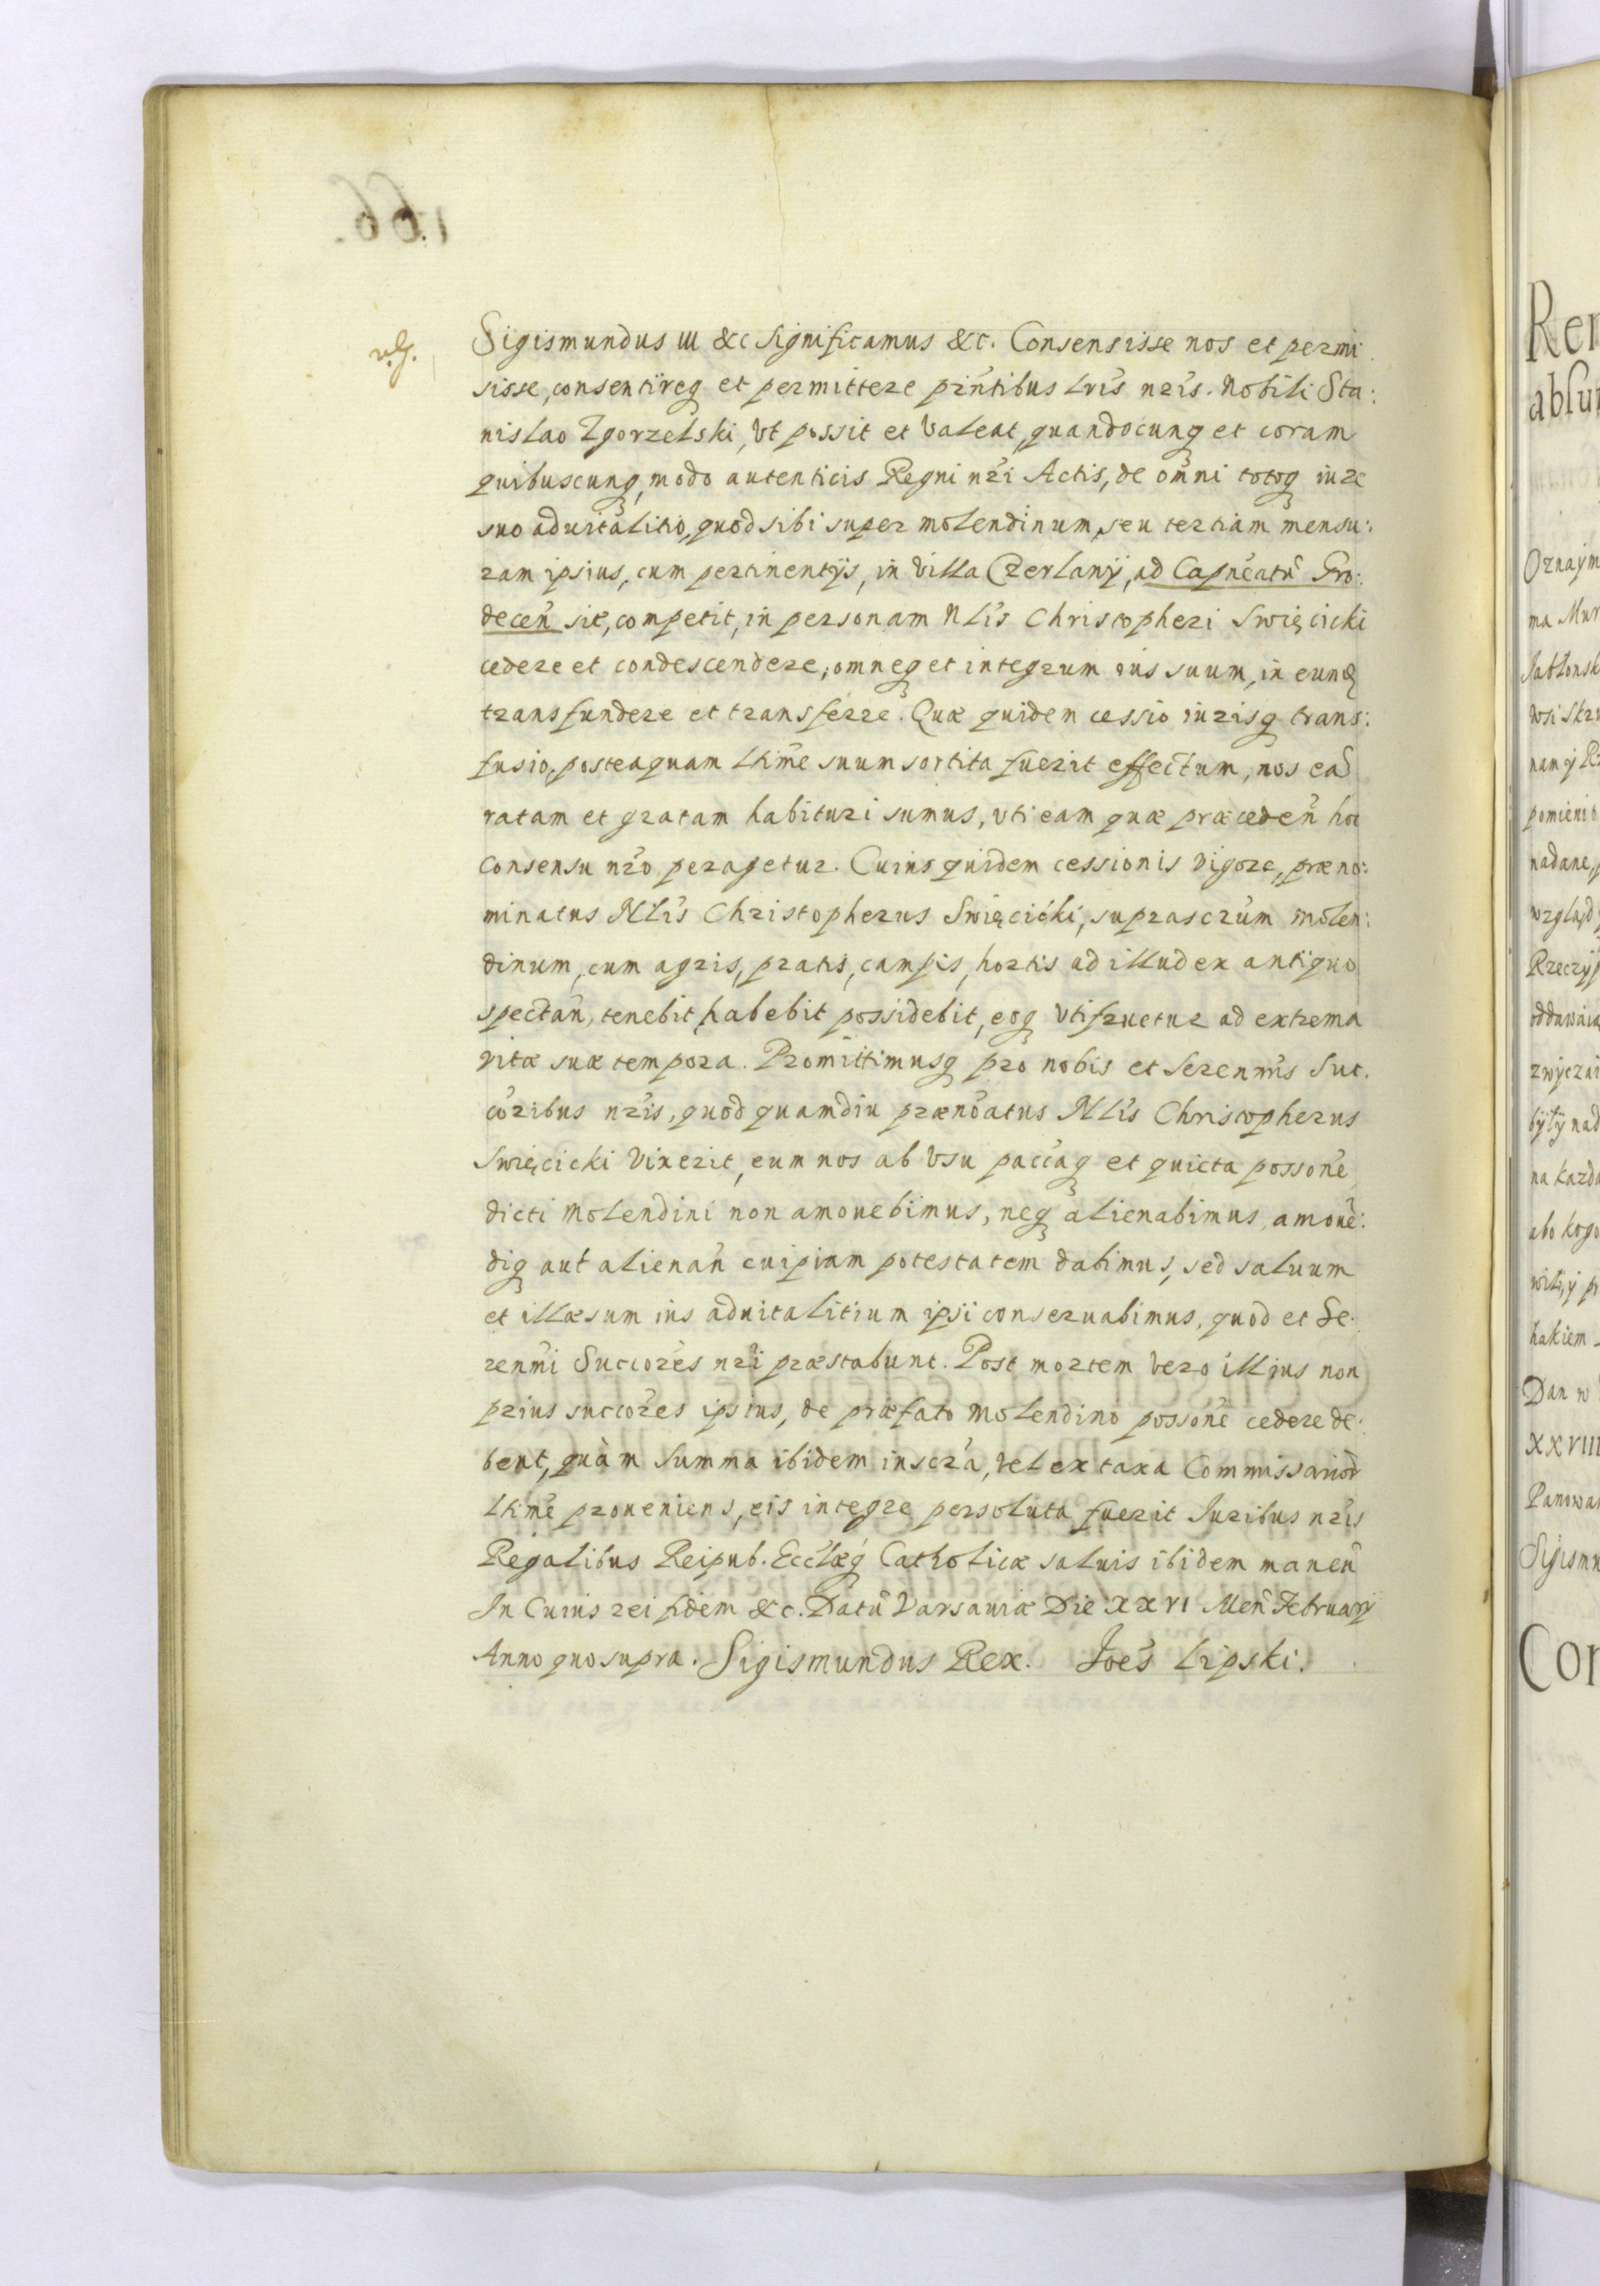 Sigismundus III &c significamus &c. Consensisse nos et permi
sisse, consentireq et permittere pn̄tibus Lris nris. Nobili Sta:
nislao Zgorzelski, Vt possit et Valeat, quandocunq et coram
quibuscunq, modo autenticis Regni nri Actis, de omni totoq iure
suo aduitalitio, quod sibi super molendinum, seu tertiam mensu:
ram ipsius, cum pertinentijs, in Villa Czerlany, ad Capneatū Gro:
decen̄ sit, competit, in personam Nlis Christopheri Swięcicki
cedere et condescendere, omneq et integrum ius suum, in eund
transfundere et transferre. Quæ quidem cessio iurisq trans:
fusio, posteaquam Ltime suum sortita fuerit effectum, nos eā
ratam et gratam habituri sumus, vti eam quæ præceden̄ hoc
consensu nro peragetur. Cuius quidem cessionis vigore, præno:
minatus Nlis Christopherus Swięcicki, suprascrum molen:
dinum, cum agris, pratis, campis, hortis ad illud ex antiquo
spectan̄, tenebit, habebit possidebit, eoq Vtifruetur ad extrema
vitæ suæ tempora. Promittimusq pro nobis et Serenmis Suc.
coribus nris, quod quamdiu prænoatus Nlis Christopherus
Swięcicki Vixerit, eum nos ab Vsu paccaq et quieta possone
dicti Molendini non amouebimus, neq alienabimus, amouē:
diq aut alienan̄ cuipiam potestatem dabimus, sed saluum
et illæsum ius aduitalitium ipsi conseruabimus, quod et Se.
renmi Succores nri præstabunt. Post mortem Vero illius non
prius succores ipsius, de præfato Molendino possone cedere de.
bent, quàm Summa ibidem inscra, vel ex taxa Commissarior
Ltime proueniens, eis integre persoluta fuerit Iuribus nris
Regalibus Reipub. Ecclæq Catholicæ saluis ibidem manen̄
In Cuius rei fidem &c. Datū Varsauiæ Die XXVI Men̄ Februarij
Anno quo supra. Sigismundus Rex. Joēs Lipski.